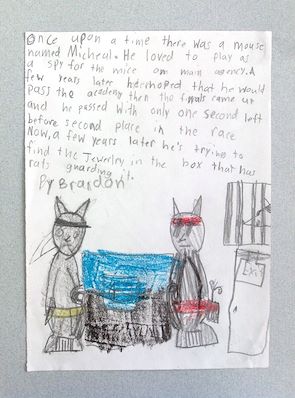 Once upon a time there was a mouse
named Micheal. He loved to play as
a spy for the mice om main agency. A
few years later he hoped that he would
pass the academy then the finals came up
and he passed with only one second left
before second place in the race
Now, a few years later he's trying to
find the Jewelry in the box that has
rats guarding it.
By Brandon
Exit